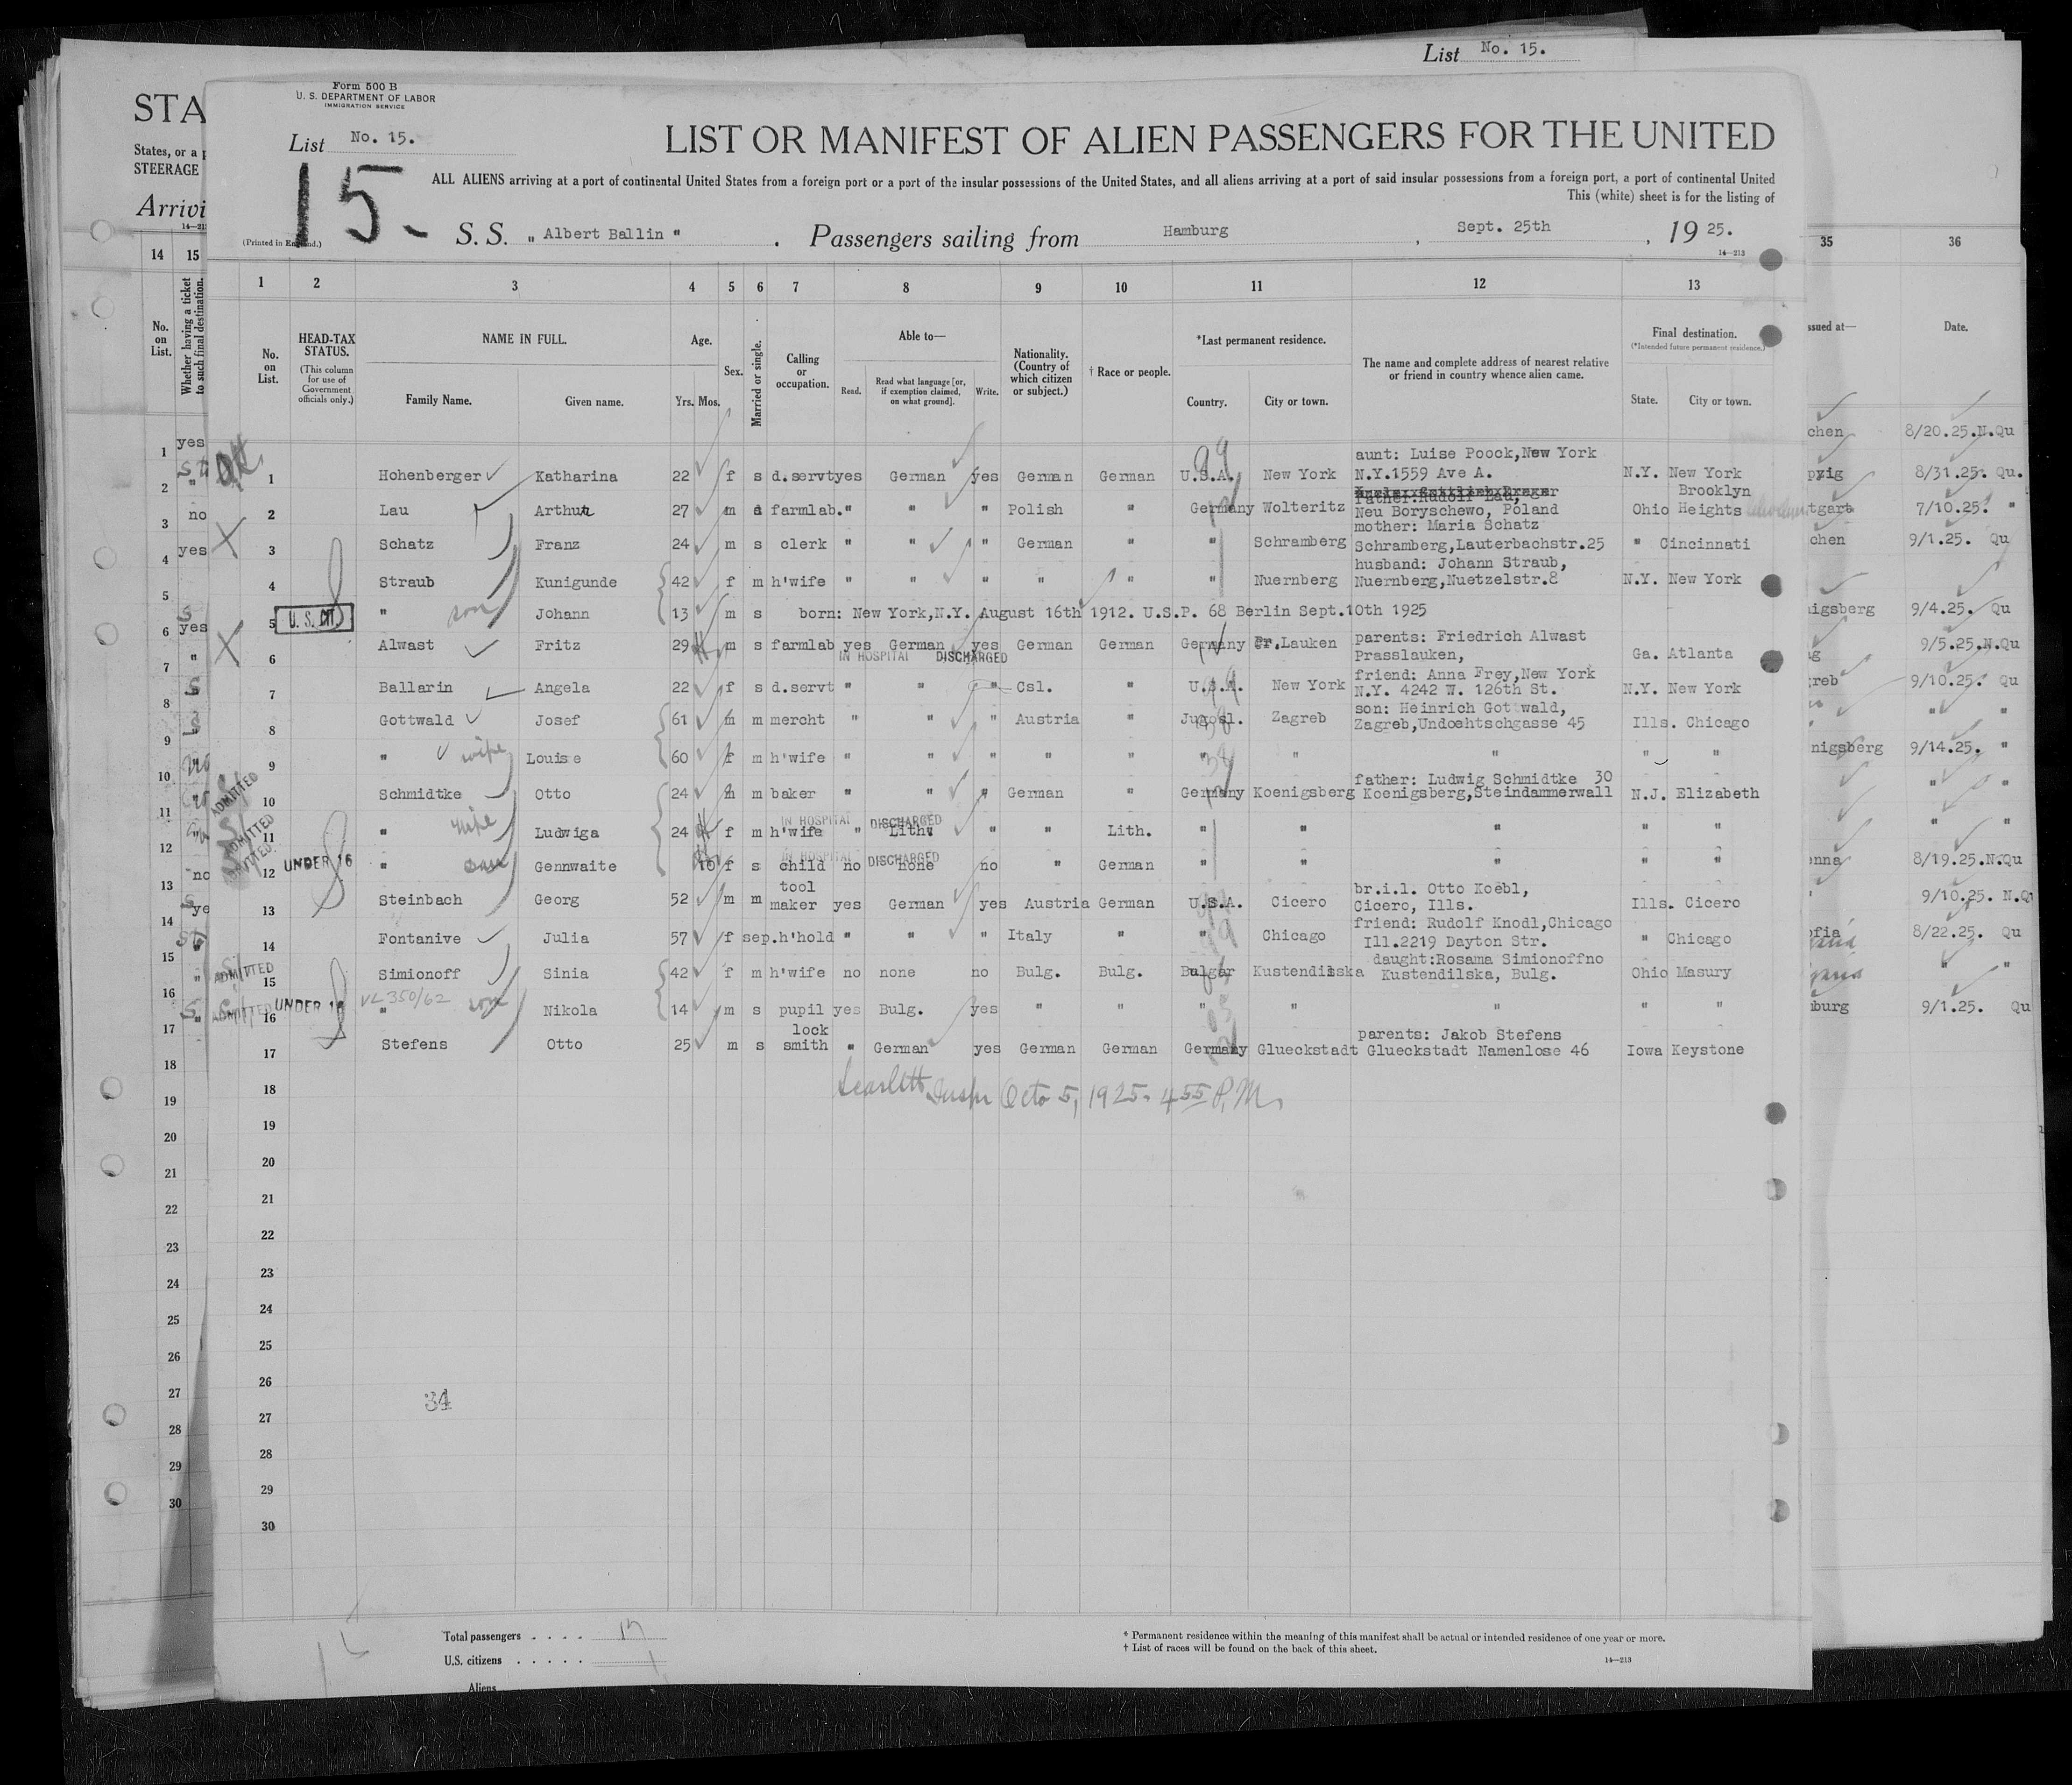 List No. 15.
Form 500 B
U. S. DEPARTMENT OF LABOR
IMMIGRATION SERVICE
STA
List No. 15.
LIST OR MANIFEST OF ALIEN PASSENGERS FOR THE UNITED
States, or a p
STEERAGE
15-
ALL ALIENS arriving at a port of continental United States from a foreign port or a port of the insular possessions of the United States, and all aliens arriving at a port of said insular possessions from a foreign port, a port of continental United
This (white) sheet is for the listing of
Arrivi
(Printed in England.)
S. S. „ Albert Ballin " . Passengers sailing from Hamburg , Sept. 25th , 19 25.
14—213
14 15 1 2 3 4 5 6 7 8 9 10 11 12 13 35 36
No. on List. Whether having a ticket to such final destination.
No. on List. HEAD-TAX STATUS. (This column for use of Government officials only.) NAME IN FULL. Family Name. Given name. Age. Yrs. Mos. Sex. Married or single. Calling or occupation. Able to— Read. Read what language [or, if exemption claimed, on what ground]. Write. Nationality. (Country of which citizen or subject.) † Race or people. *Last permanent residence. Country. City or town. The name and complete address of nearest relative or friend in country whence alien came. Final destination. (*Intended future permanent residence.) State. City or town.
ssued at— Date.
aunt: Luise Poock,New York
1 Hohenberger Katharina 22 f s d.servt yes German yes German German U.S.A. New York N.Y.1559 Ave A. N.Y. New York
Father:Rudolf Lau, Brooklyn
2 Lau Arthur 27 m s farmlab. " " " Polish " Germany Wolteritz Neu Boryschewo, Poland Ohio Heights
mother: Maria Schatz
3 Schatz Franz 24 m s clerk " " " German " " Schramberg Schramberg,Lauterbachstr.25 " Cincinnati
husband: Johann Straub,
4 Straub Kunigunde 42 f m h'wife " " " " " " Nuernberg Nuernberg,Nuetzelstr.8 N.Y. New York
5 U. S. CIT " son Johann 13 m s born: New York,N.Y. August 16th 1912. U.S.P. 68 Berlin Sept.10th 1925
6 Alwast Fritz 29 m s farmlab yes German yes German German Germany Pr.Lauken parents: Friedrich Alwast
Prasslauken, Ga. Atlanta
IN HOSPITAL DISCHARGED
friend: Anna Frey,New York
7 Ballarin Angela 22 f s d.servt " " " Csl. " U.S.A. New York N.Y. 4242 W. 126th St. N.Y. New York
son: Heinrich Gottwald,
8 Gottwald Josef 61 m m mercht " " " Austria " Jugosl. Zagreb Zagreb,Undoehtschgasse 45 Ills. Chicago
9 " wife Louise 60 f m h'wife " " " " " " " " " "
father: Ludwig Schmidtke 30
10 ADMITTED Schmidtke Otto 24 m m baker " " " German " Germany Koenigsberg Koenigsberg,Steindammerwall N.J. Elizabeth
IN HOSPITAL DISCHARGED
11 ADMITTED " wife Ludwiga 24 f m h'wife " Lith. " " Lith. " " " " "
IN HOSPITAL DISCHARGED
12 ADMITTED UNDER 16 " Gennwaite 10 f s child no none no " German " " " " "
tool br.i.l. Otto Koebl,
13 Steinbach Georg 52 m m maker yes German yes Austria German U.S.A. Cicero Cicero, Ills. Ills. Cicero
friend: Rudolf Knodl,Chicago
14 Fontanive Julia 57 f sep. h'hold " " " Italy " " Chicago Ill.2219 Dayton Str. " Chicago
daught:Rosama Simionoffno
15 ADMITTED Simionoff Sinia 42 f m h'wife no none no Bulg. Bulg. Bulgar Kustendilska Kustendilska, Bulg. Ohio Masury
VL 350/62
16 ADMITTED UNDER 16 " son Nikola 14 m s pupil yes Bulg. yes " " " " " " "
lock parents: Jakob Stefens
17 Stefens Otto 25 m s smith " German yes German German Germany Glueckstadt Glueckstadt Namenlose 46 Iowa Keystone
Octo 5, 1925. 4 55 P.M.
18
19
20
21
22
23
24
25
26
27
34
28
29
30
chen 8/20.25.N.Qu
pzig 8/31.25. Qu.
tgart 7/10.25. "
chen 9/1.25. Qu
nigsberg 9/4.25. Qu
9/5.25.N.Qu
greb 9/10.25. Qu
" "
nigsberg 9/14.25. "
" "
" "
enna 8/19.25.N.Qu
9/10.25. N.Q
ofia 8/22.25. Qu
" "
burg 9/1.25. Qu
Total passengers . . . . 17
U.S. citizens . . . . . 1
Aliens
* Permanent residence within the meaning of this manifest shall be actual or intended residence of one year or more.
† List of races will be found on the back of this sheet.
14—213